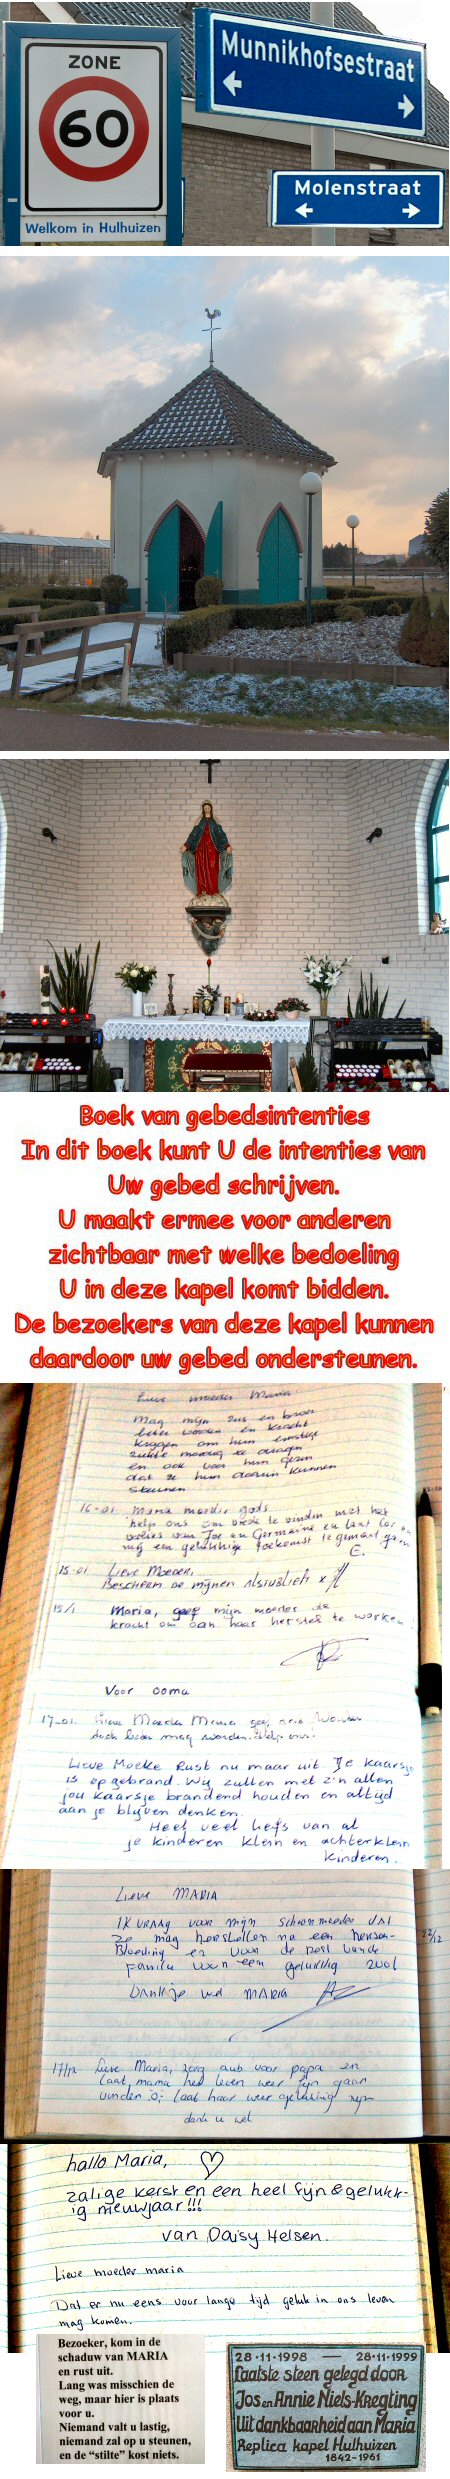 ZONE
60
Welkom in Hulhuizen
Munnikhofsestraat
Molenstraat
Boek van gebedsintenties
In dit boek kunt U de intenties van
Uw gebed schrijven.
U maakt ermee voor anderen
zichtbaar met welke bedoeling
U in deze kapel komt bidden.
De bezoekers van deze kapel kunnen
daardoor uw gebed ondersteunen.
Lieve moeder Maria
Mag mijn zus en broer
beter worden en kracht
krijgen om hun ernstige
ziekte moedig te dragen
en ook voor hun gezin
dat ze hun daarin kunnen
steunen
16-01 Maria moeder gods
help ons om vrede te vinden met het
verlies van Joe en Germaine en laat
mij een gelukkige toekomst tegemoet gaan
E.
15-01 Lieve Moeder,
Bescherm de mijnen alstublieft x
15/1 Maria, geef mijn moeder de
kracht om aan haar herstel te werken
Voor ooma
17-01 Lieve Moeder Maria
Lieve Moeke Rust nu maar uit Je kaarsje
is opgebrand. Wij zullen met z'n allen
jou kaarsje brandend houden en altijd
aan je blijven denken.
Heel veel liefs van al
je kinderen klein en achterklein
kinderen.
Lieve MARIA
IK VRAAG voor mijn schoonmoeder DAT
ze mag herstellen na een hersen-
Bloeding en voor de rest van de
familie een gelukkig 2001
Dankje wel MARIA
22/12
17/12 Lieve Maria, zorg aub voor papa en
laat mama het leven weer fijn gaan
vinden laat haar weer gelukkig zijn
dank u wel
hallo Maria, ♡
zalige kerst en een heel fijn & gelukk-
ig nieuwjaar!!!
van Daisy Helsen.
Lieve moeder maria
Dat er nu eens voor lange tijd geluk in ons leven
mag komen.
Bezoeker, kom in de
schaduw van MARIA
en rust uit.
Lang was misschien de
weg, maar hier is plaats
voor u.
Niemand valt u lastig,
niemand zal op u steunen,
en de “stilte” kost niets.
28·11·1998 — 28·11·1999
Laatste steen gelegd door
Jos en Annie Niels-Kregting
Uit dankbaarheid aan Maria
Replica kapel Hulhuizen
1842-1961